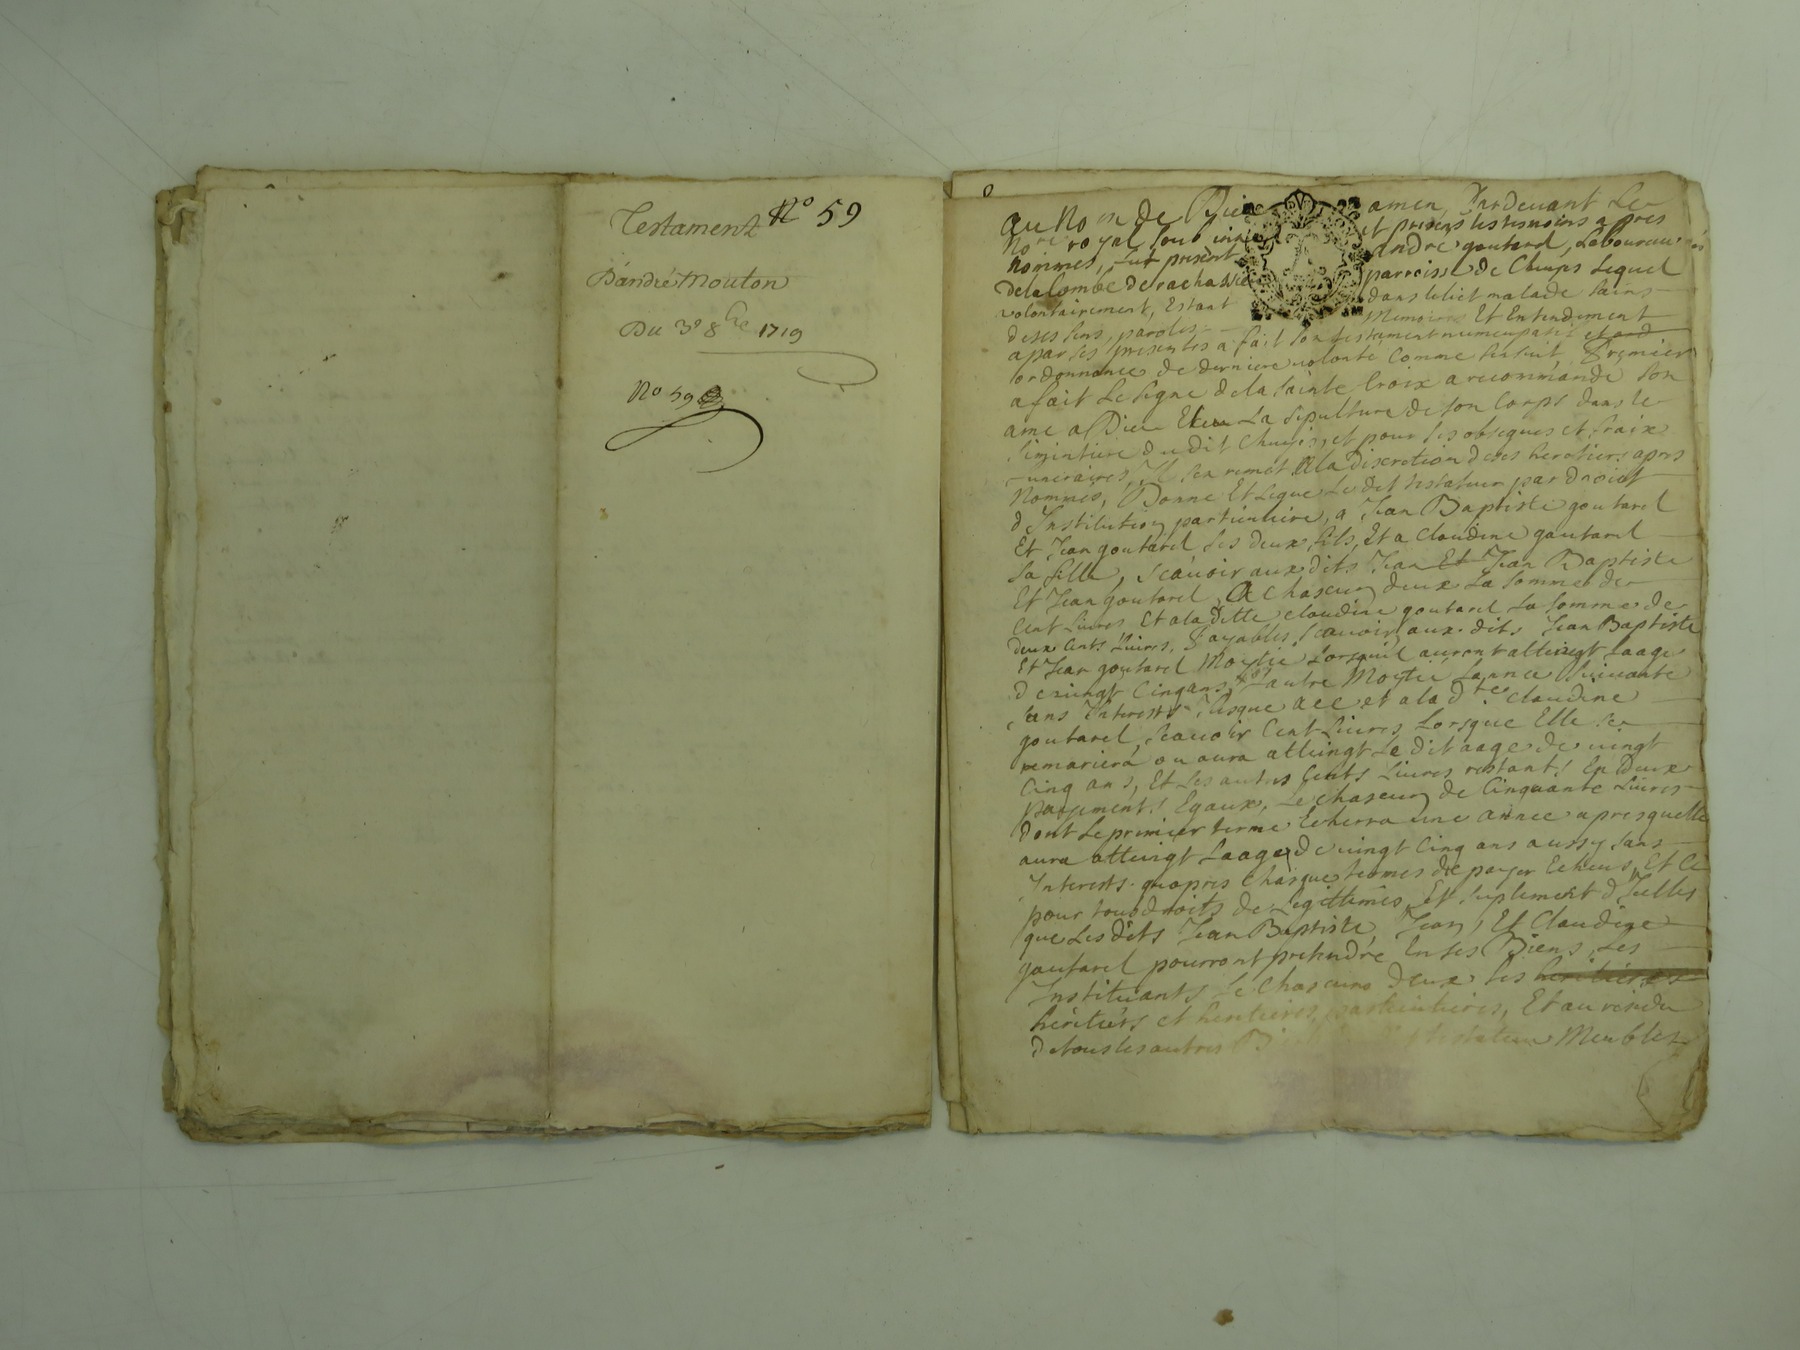 Testament N° 59
D'andré Mouton
Du 3e 8bre 1719
N° 59
au Nom de Dieu amen, Pardevant Le
No.re royal soub et presens les tesmoins apres
Nommes, fut present André goutarel, Laboureur
de la Combe de rachassie parroisse de Lequel
volontairement, Estant dans le lict malade sains
de ses sens, paroles Memoires Et Entendement
a par ses presentes a fait son testament nuncupatif et ord
ordonnance de derniere volonté Comme sensuit, Premier
a fait Le signe de la sainte Croix a recommandé son
ame a Dieu La sepulture de son Corps dans le
Simintiere dudit et pour ses obseques et fraix
funeraires, Il sen remet A la discretion de ses heretiers apres
Nommes, Donne Et Legue Le dit testateur par droict
d Institution particuliere, a Jean Baptiste goutarel
Et Jean goutarel ses deux fils, Et a Claudine goutarel
sa fille, scauoir aux dits Jean Et Jean Baptiste
Et Jean goutarel, A chascun deux La somme de
Cent Liures Et a la Ditte claudine goutarel La somme de
deux Cents Liures, Payables scauoir aux dits Jean Baptiste
Et Jean goutarel Moytié Lorsquil auront atteingt Laage
de vingt Cinq ans, Lautre Moytié Lannee suiuante
sans Interests Jusque a et a la dte. claudine
goutarel, scauoir Cent Liures Lorsque Elle se
remariera ou aura atteingt Le dit aage de vingt
Cinq ans, Et Les autres Cents Liures restants En Deux
payements Egaux, Le chascun de Cinquante Liures
dont Le premier terme Echerra une annee apres quelle
aura atteingt Laage de vingt Cinq ans aussy sans
Interests quapres chasque termes de payer Echeus, Et Ce
pour tous droits de Legittimes Et suplement d Icelles
que Les dits Jean Baptiste, Jean, Et Claudine
goutarel pourront prethendre En ses Biens, Les
Instituants Le chascuns deux ses heritieres
heritiers et heritieres particulieres, Et au residu
de tous les autres testateur Meubles